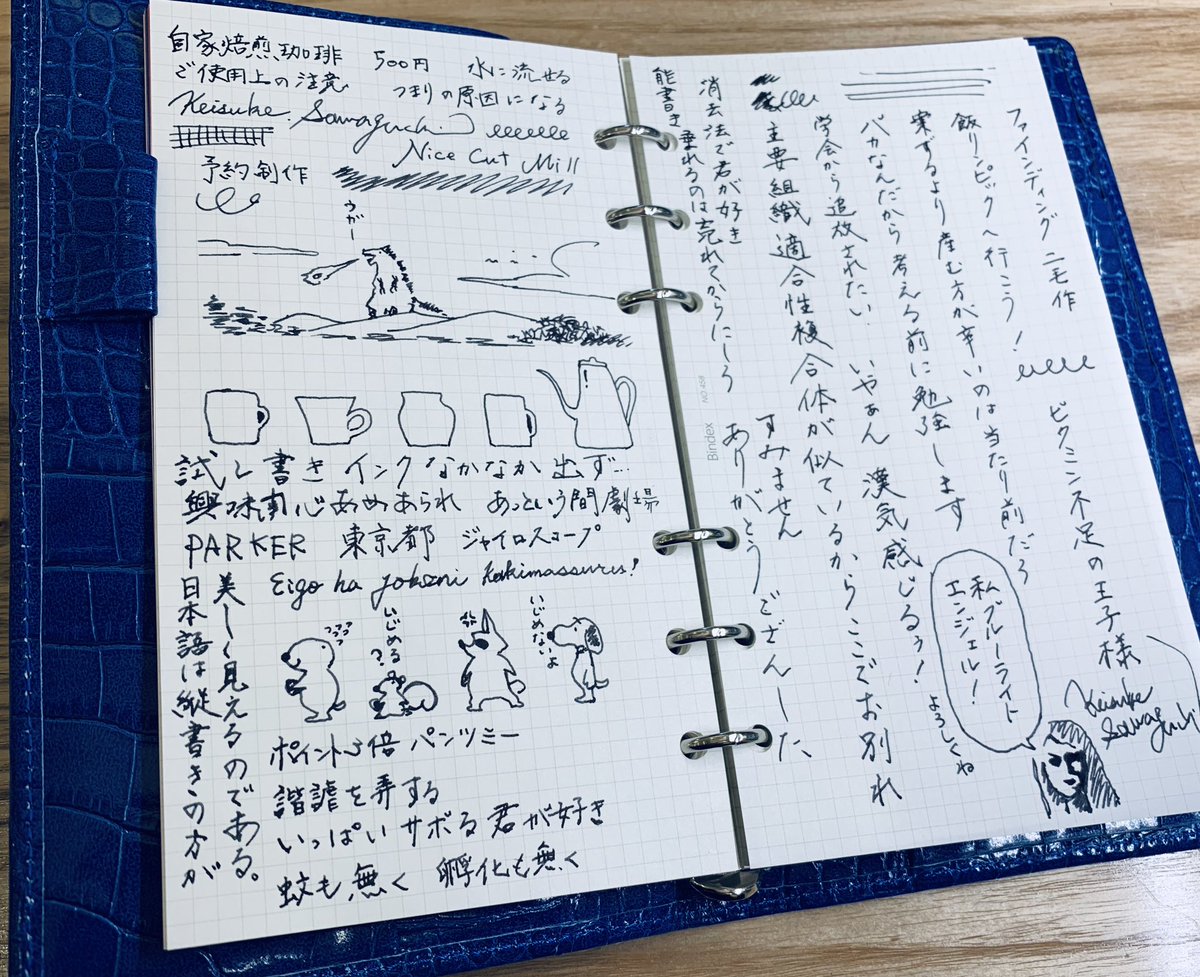 自家焙煎珈琲　500円　水に流せる
ご使用上の注意　つまりの原因になる
Keisuke Sawaguchi
Nice Cut Mill
予約制作
うがー
試し書き インクなかなか出ず…
興味関心あめあられ　あっという間劇場
PARKER　東京都　ジャイロスコープ
Eigo ha jobuni kakimassuru!
日本語は縦書きの方が
美しく見えるのである。
いじめる?
いじめないよ
ポイント5倍 パンツミー
諧謔を弄する
いっぱいサボる君が好き
蚊も無く　孵化も無く
ファインディング ニモ作　ピクミン不足の王子様
飯リンピックへ行こう！
案ずるより産む方が辛いのは当たり前だろ
バカなんだから考える前に勉強します
学会から追放されたい　いやぁん　漢気感じるぅ！　よろしくね
主要組織適合性複合体が似ているからここでお別れ
すみません
消去法で君が好き　ありがとうござんした
能書き垂れるのは売れてからにしろ
私ブルーライト
エンジェル！
Keisuke
Sawaguchi
Bindex